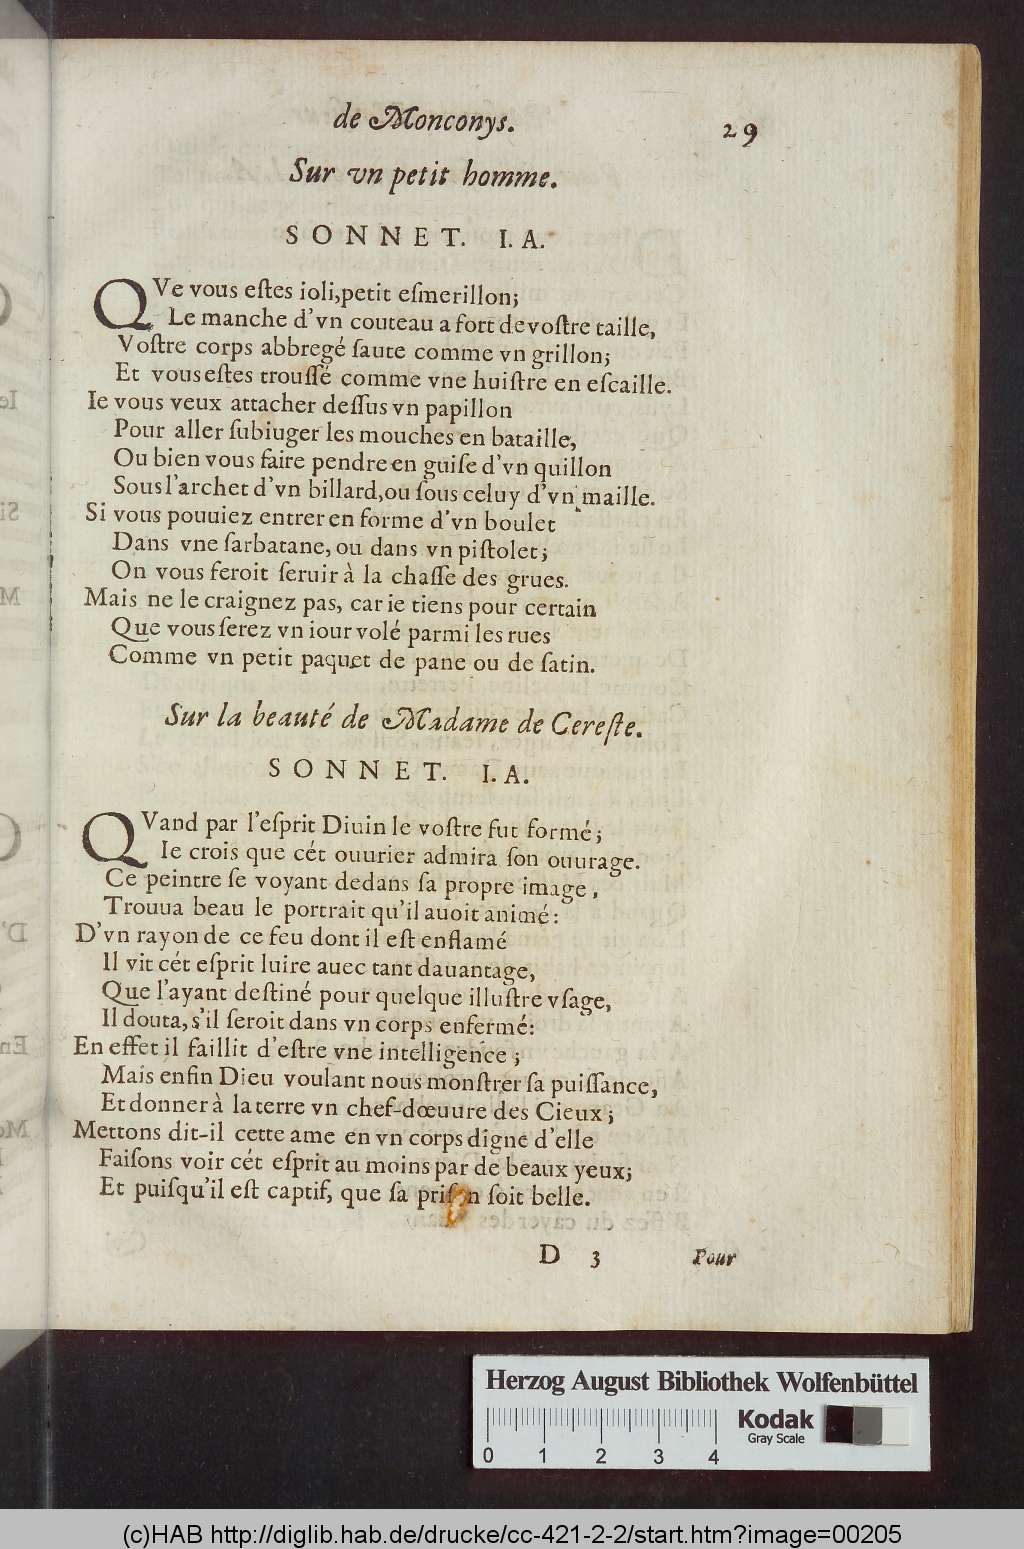 de Monconys. 29
Sur vn petit homme.
SONNET. I. A.
QVe vous eſtes ioli, petit eſmerillon;
Le manche d'vn couteau a fort de voſtre taille,
Voſtre corps abbregé ſaute comme vn grillon;
Et vous eſtes trouſſé comme vne huiſtre en eſcaille.
Ie vous veux attacher deſſus vn papillon
Pour aller ſubiuger les mouches en bataille,
Ou bien vous faire pendre en guiſe d'vn quillon
Sous l'archet d'vn billard, ou ſous celuy d'vn maille.
Si vous pouuiez entrer en forme d'vn boulet
Dans vne ſarbatane, ou dans vn piſtolet;
On vous feroit ſeruir à la chaſſe des grues.
Mais ne le craignez pas, car ie tiens pour certain
Que vous ſerez vn iour volé parmi les rues
Comme vn petit paquet de pane ou de ſatin.
Sur la beauté de Madame de Cereſte.
SONNET. I. A.
QVand par l'eſprit Diuin le voſtre fut formé;
Ie crois que cét ouurier admira ſon ouurage.
Ce peintre ſe voyant dedans ſa propre image,
Trouua beau le portrait qu'il auoit animé:
D'vn rayon de ce feu dont il eſt enflamé
Il vit cét eſprit luire auec tant dauantage,
Que l'ayant deſtiné pour quelque illuſtre vſage,
Il douta, s'il ſeroit dans vn corps enfermé:
En effet il faillit d'eſtre vne intelligence;
Mais enfin Dieu voulant nous monſtrer ſa puiſſance,
Et donner à la terre vn chef-dœuure des Cieux;
Mettons dit-il cette ame en vn corps digne d'elle
Faiſons voir cét eſprit au moins par de beaux yeux;
Et puiſqu'il eſt captif, que ſa priſon ſoit belle.
D 3 Pour
Herzog August Bibliothek Wolfenbüttel
Kodak
Gray Scale
0 1 2 3 4
(c)HAB http://diglib.hab.de/drucke/cc-421-2-2/start.htm?image=00205